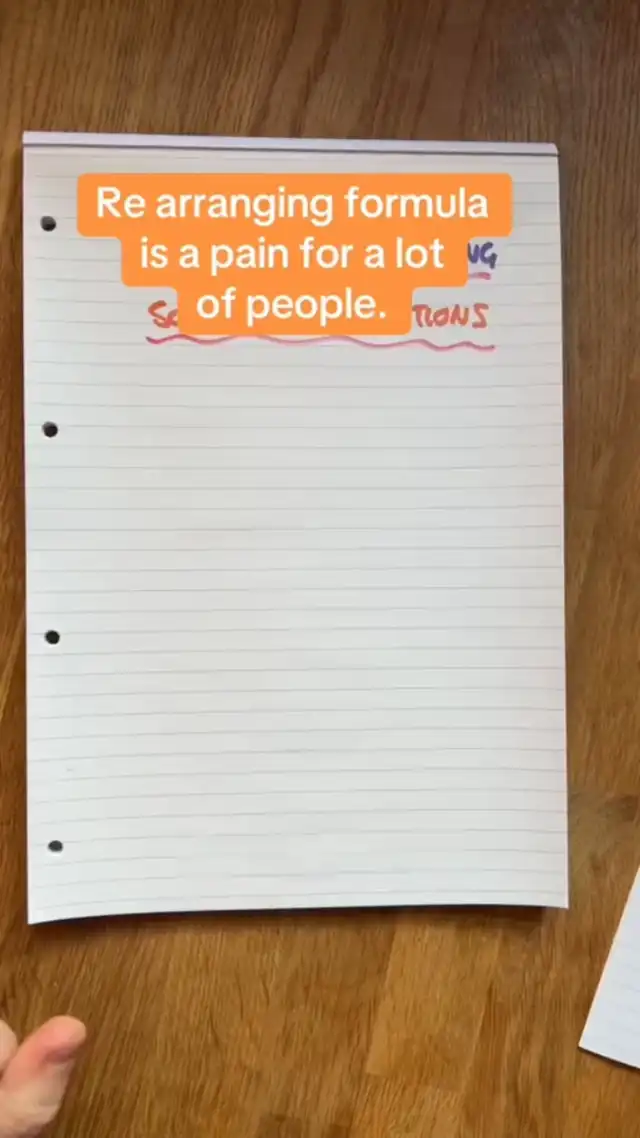 Re arranging formula
is a pain for a lot
of people.